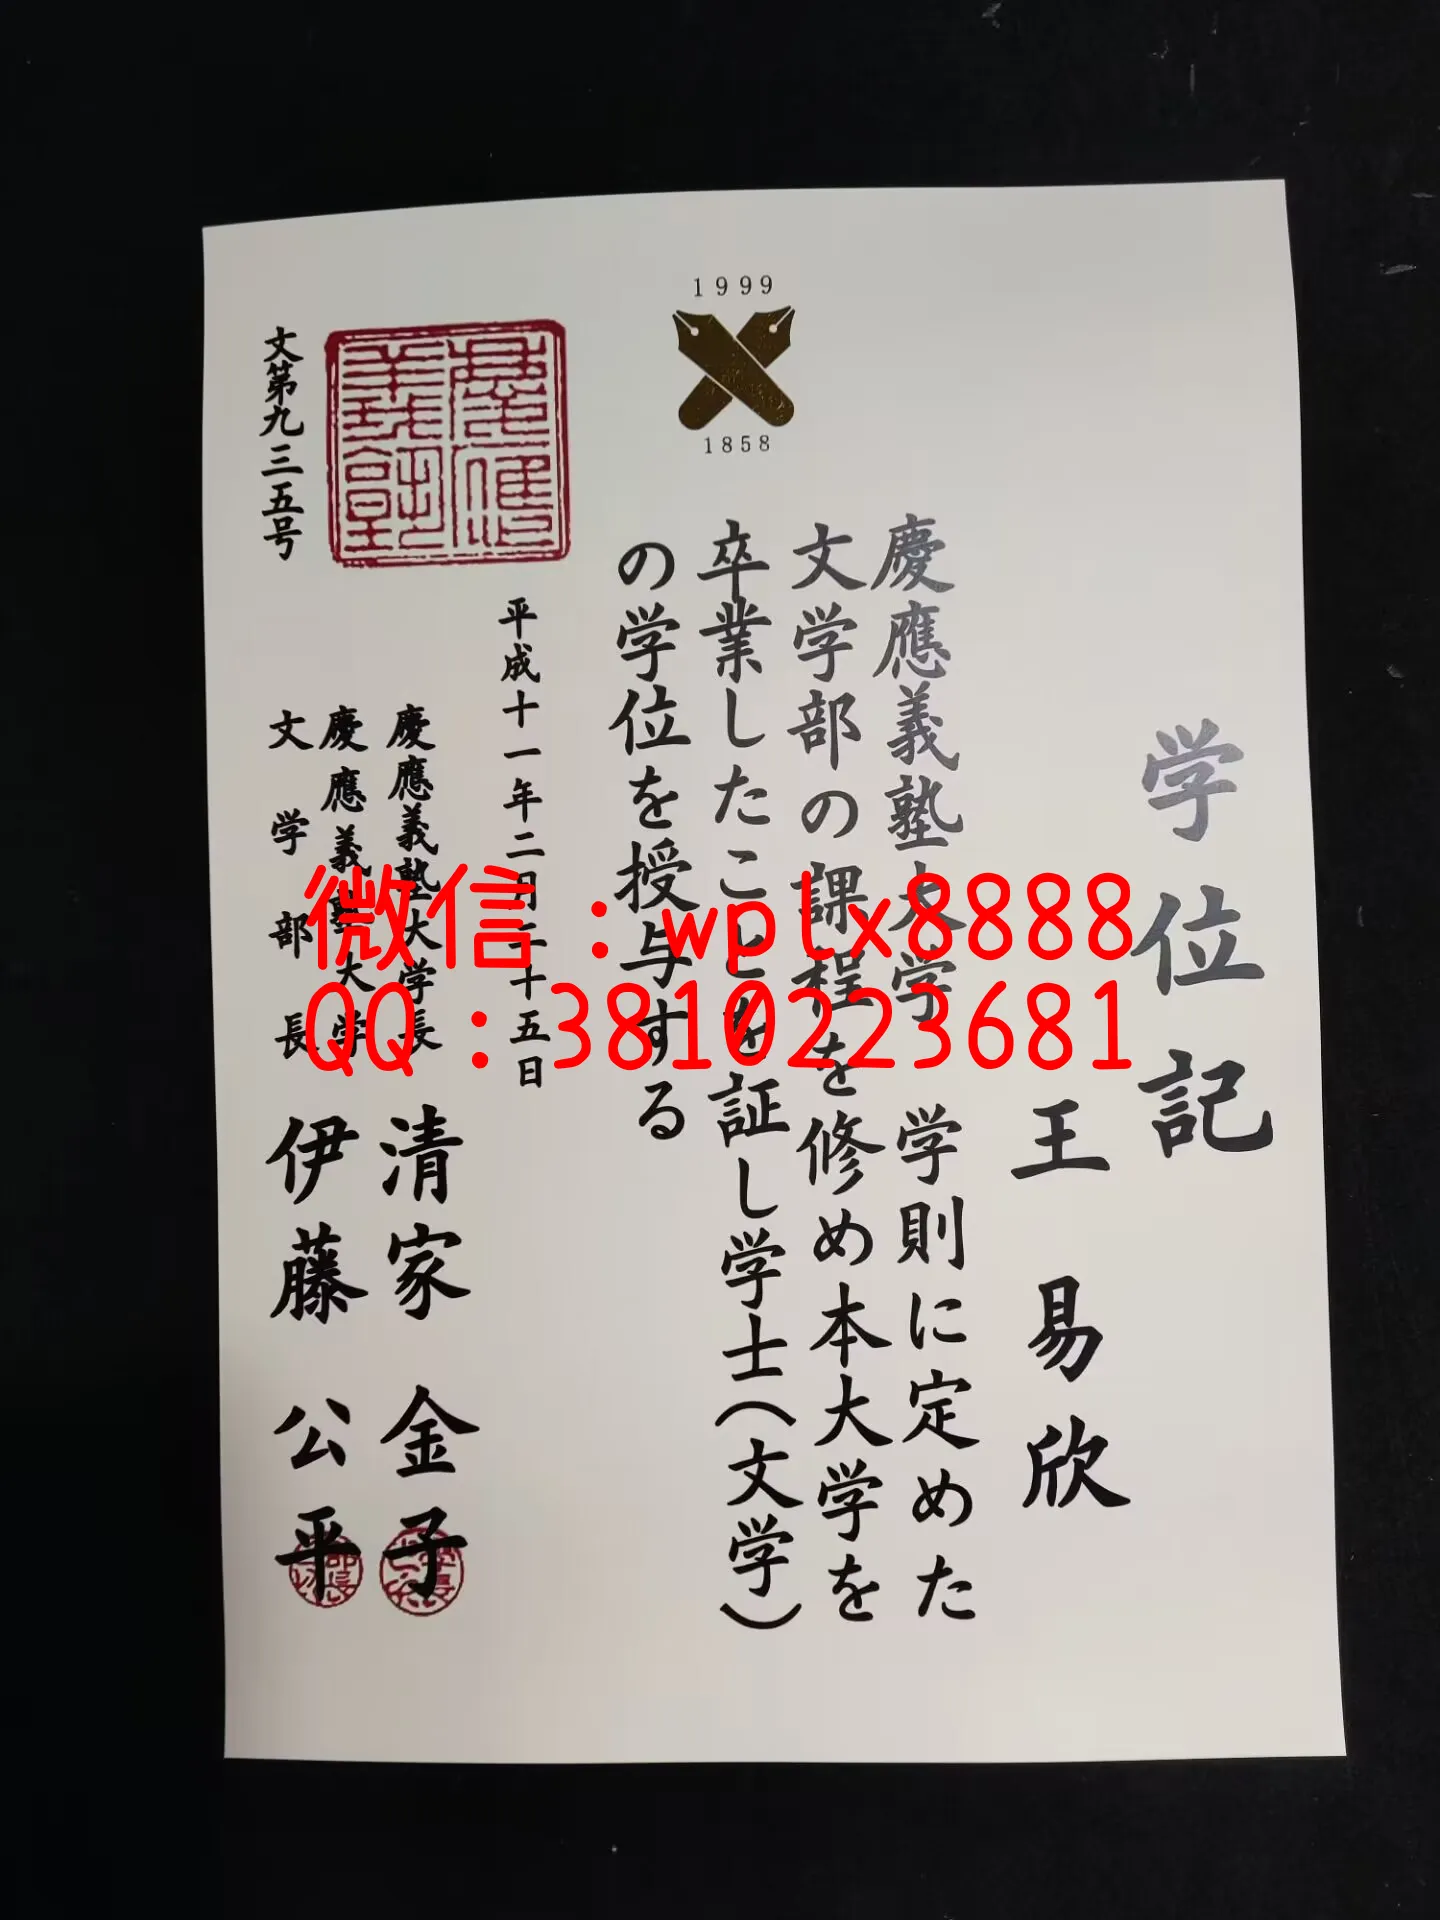 1999
1858
学位記
王易欣
慶應義塾大学 学則に定めた
文学部の課程を修め本大学を
卒業したことを証し学士(文学)
の学位を授与する
平成十一年二月二十五日
慶應義塾大学長 清家 金子
慶應義塾大学
文学部長 伊藤 公平
文第九三五号
微信:wplx8888
QQ:3810223681